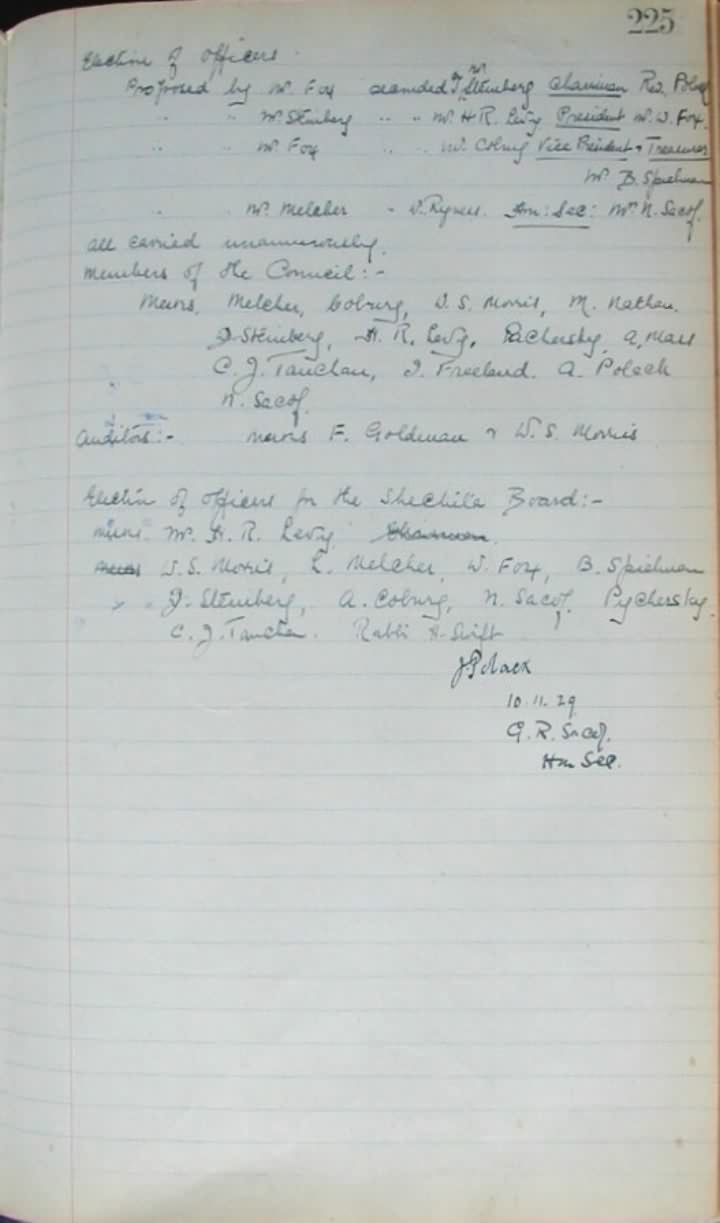 225
Election of Officers
Proposed by Mr. Fox seconded Mr Steinberg Chairman Rev. Polack
" " Mr. Steinberg " " Mr. H R. Levy President Mr. W. Fox.
" " Mr. Fox " " Mr. Coburg Vice President & Treasurer
Mr B. Spielman
" Mr. Melcher " Hon: Sec: Mr N. Sacof.
all carried unanimously.
Members of the Council:-
Messrs. Melcher, Coburg, W. S. Morris, M. Nathan.
J. Steinberg, H. R. Levy, Pachersky, A. Marr
C. J. Tauchan, I. Freeland. A. Polack
N. Sacof.
Auditors:- Messrs F. Goldman & W. S. Morris
Election of Officers for the Shechita Board:-
Mr. H. R. Levy Chairman.
W. S. Morris, L. Melcher, W. Fox, B. Spielman
J. Steinberg, A. Coburg, N. Sacof, Pychersky.
C. J. Tauchan. Rabbi H. Swift
J Polack
10.11.29
G. R. Sacof.
Hon Sec.